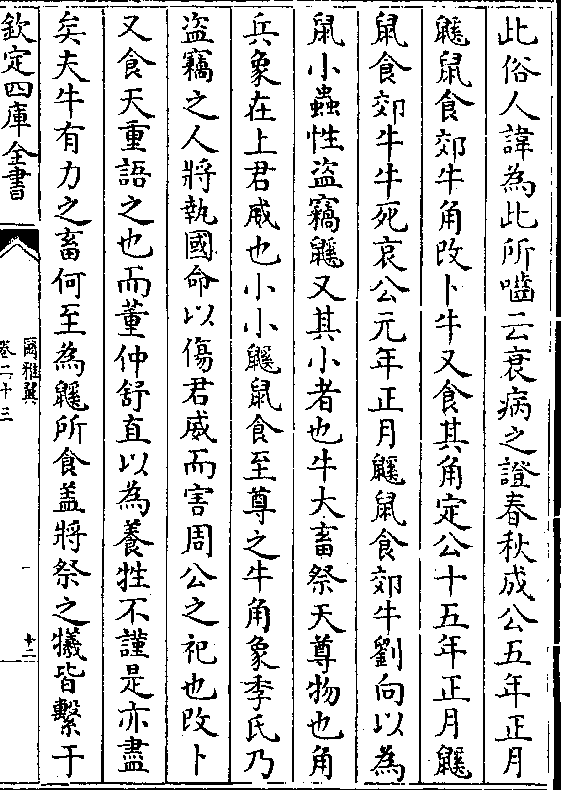 此俗人諱為此所嚙云衰病之證春秋成公五年正月
鼷鼠食郊牛角改卜牛又食其角定公十五年正月鼷
鼠食郊牛牛死哀公元年正月鼷鼠食郊牛劉向以為
鼠小蟲性盜竊鼷又其小者也牛大畜祭天尊物也角
兵象在上君威也小小鼷鼠食至尊之牛角象季氏乃
盜竊之人將執國命以傷君威而害周公之祀也改卜
又食天重語之也而董仲舒直以為養牲不謹是亦盡
矣夫牛有力之畜何至為鼷所食盖將祭之犧皆繫于
欽定四庫全書
爾雅翼
卷二十三
十二